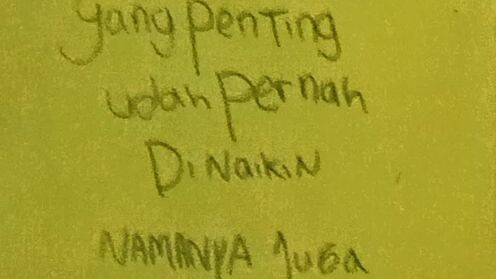 yang penting
udah pernah
DiNaikiN
NAMANYA Juga